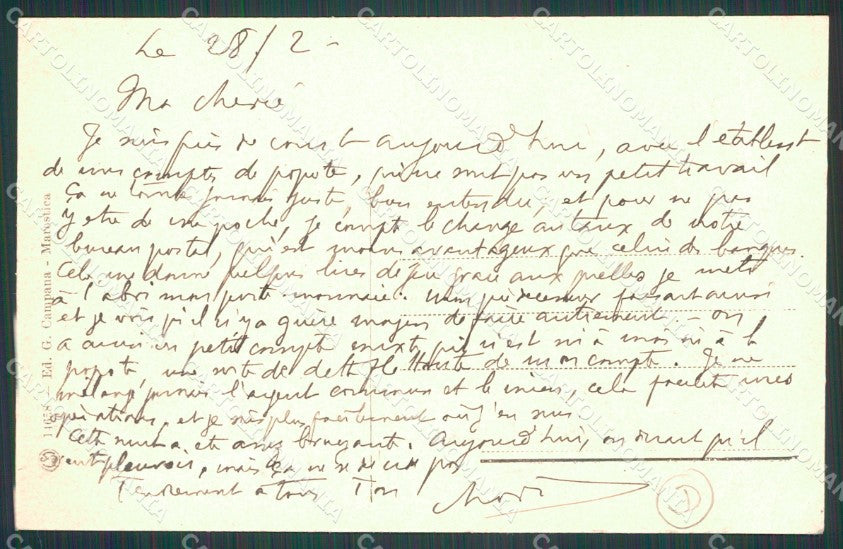 Le 28/2 -
Ma cherie
Je suis pris de court aujourd'hui, avec l'établisst
de mes comptes de popote, qui ne sont pas un petit travail
Ça ne tombe jamais juste, bien entendu, et pour ne pas
y etre de ma poche, je compte le change au taux de notre
bureau postal, qui est moins avantageux que celui des banques.
Cela me donne quelques lires de grace aux quelles je mets
à l'abri mon porte monnaie. faisait aussi
et je vois qu'il n'y a guère moyen de faire autrement - on
a aussi un petit compte mixte qui n'est ni à moi ni à la
popote, une sorte de de mon compte. Je ne
mélange jamais l'argent commun et le mien, cela facilite mes
opérations, et je sais plus facilement où j'en suis
Cette nuit a été assez bruyante. Aujourd'hui, on dirait qu'il
veut pleuvoir, mais ça ne se décide pas
Tendrement à tous Ton
11678 - Ed. G. Campana - Marostica
CARTOLINOMANIA